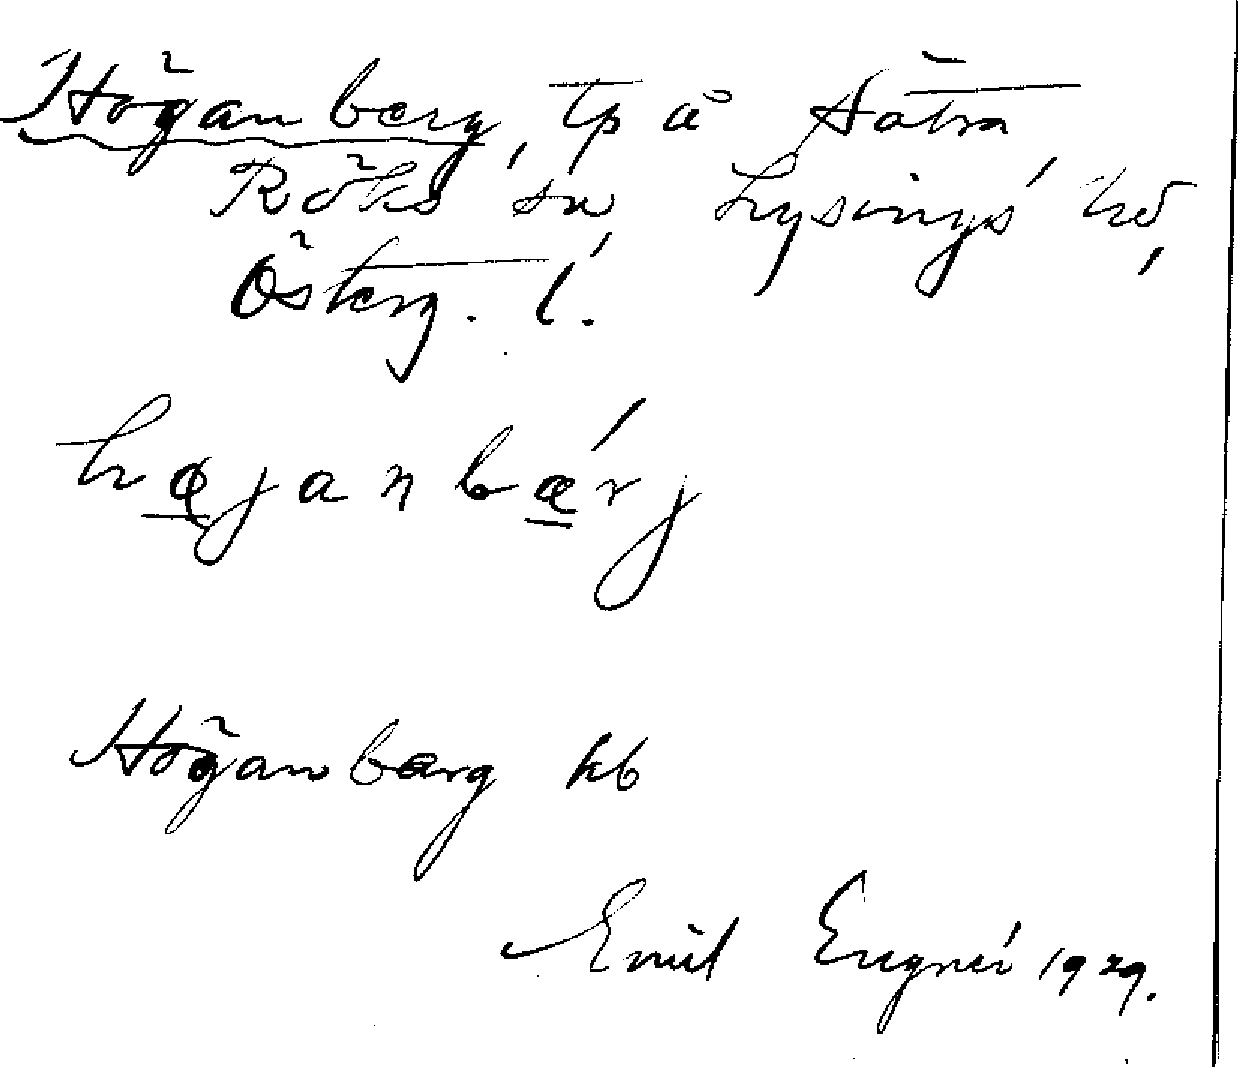 Höganberg, tp å Sätra
Röks sn Lysings hd,
Österg. l.
højanbærj
Höganberg kb
Emil Engnér 1929.